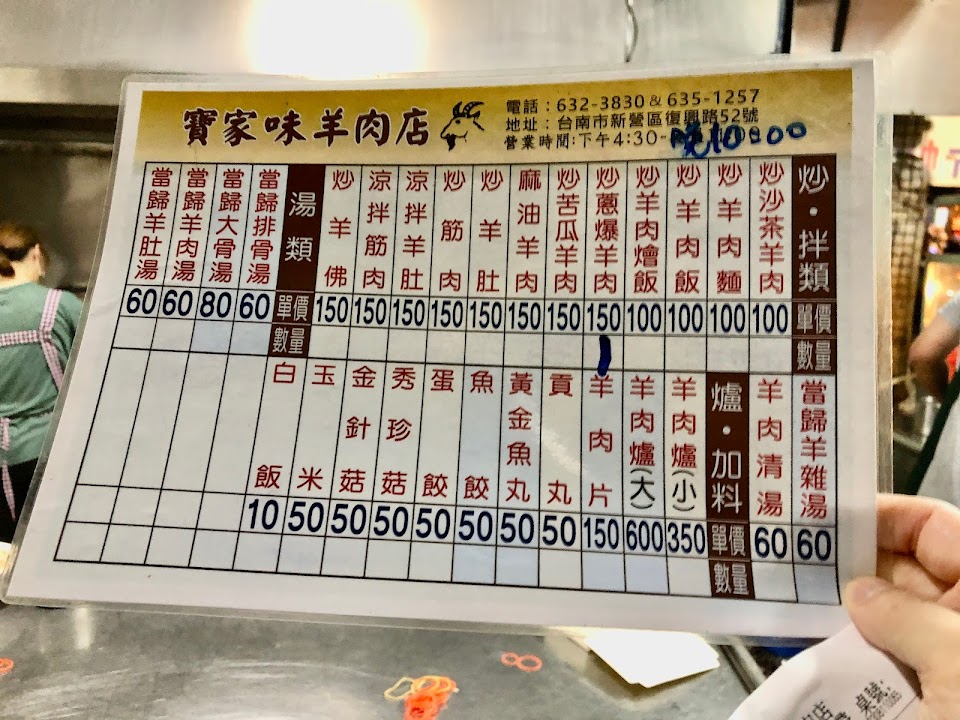 寶家味羊肉店
電話：632-3830 & 635-1257
地址：台南市新營區復興路52號
營業時間:下午4:30-晚10:00
炒・拌類 單價 數量
炒沙茶羊肉 100
炒羊肉麵 100
炒羊肉飯 100
炒羊肉燴飯 100
炒蔥爆羊肉 150
炒苦瓜羊肉 150
麻油羊肉 150
炒羊肚 150
炒筋肉 150
涼拌羊肚 150
涼拌筋肉 150
炒羊佛 150
湯類 單價 數量
當歸排骨湯 60
當歸大骨湯 80
當歸羊肉湯 60
當歸羊肚湯 60
當歸羊雜湯 60
羊肉清湯 60
爐・加料 單價 數量
羊肉爐(小) 350
羊肉爐(大) 600
羊肉片 150
貢丸 50
黃金魚丸 50
魚餃 50
蛋餃 50
秀珍菇 50
金針菇 50
玉米 50
白飯 10
桌號: